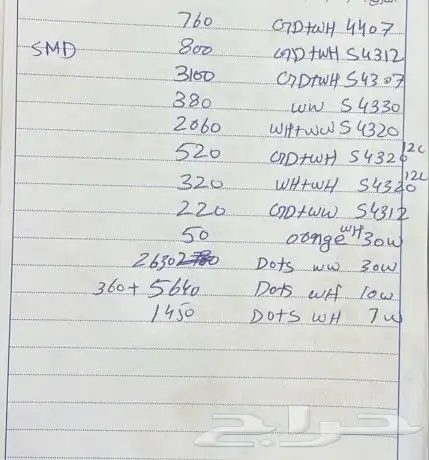 760 GD+WH 4407
SMD 800 GD+WH S4312
3100 GD+WH S4307
380 WW S4330
2060 WH+WW S4320
520 GD+WH S4320 12C
320 WH+WH S4320 12C
220 GD+WW S4312
50 orange WH 30W
2630 Dots WW 30W
360+ 5640 Dots WH 10W
1450 DOTS WH 7W
حراج